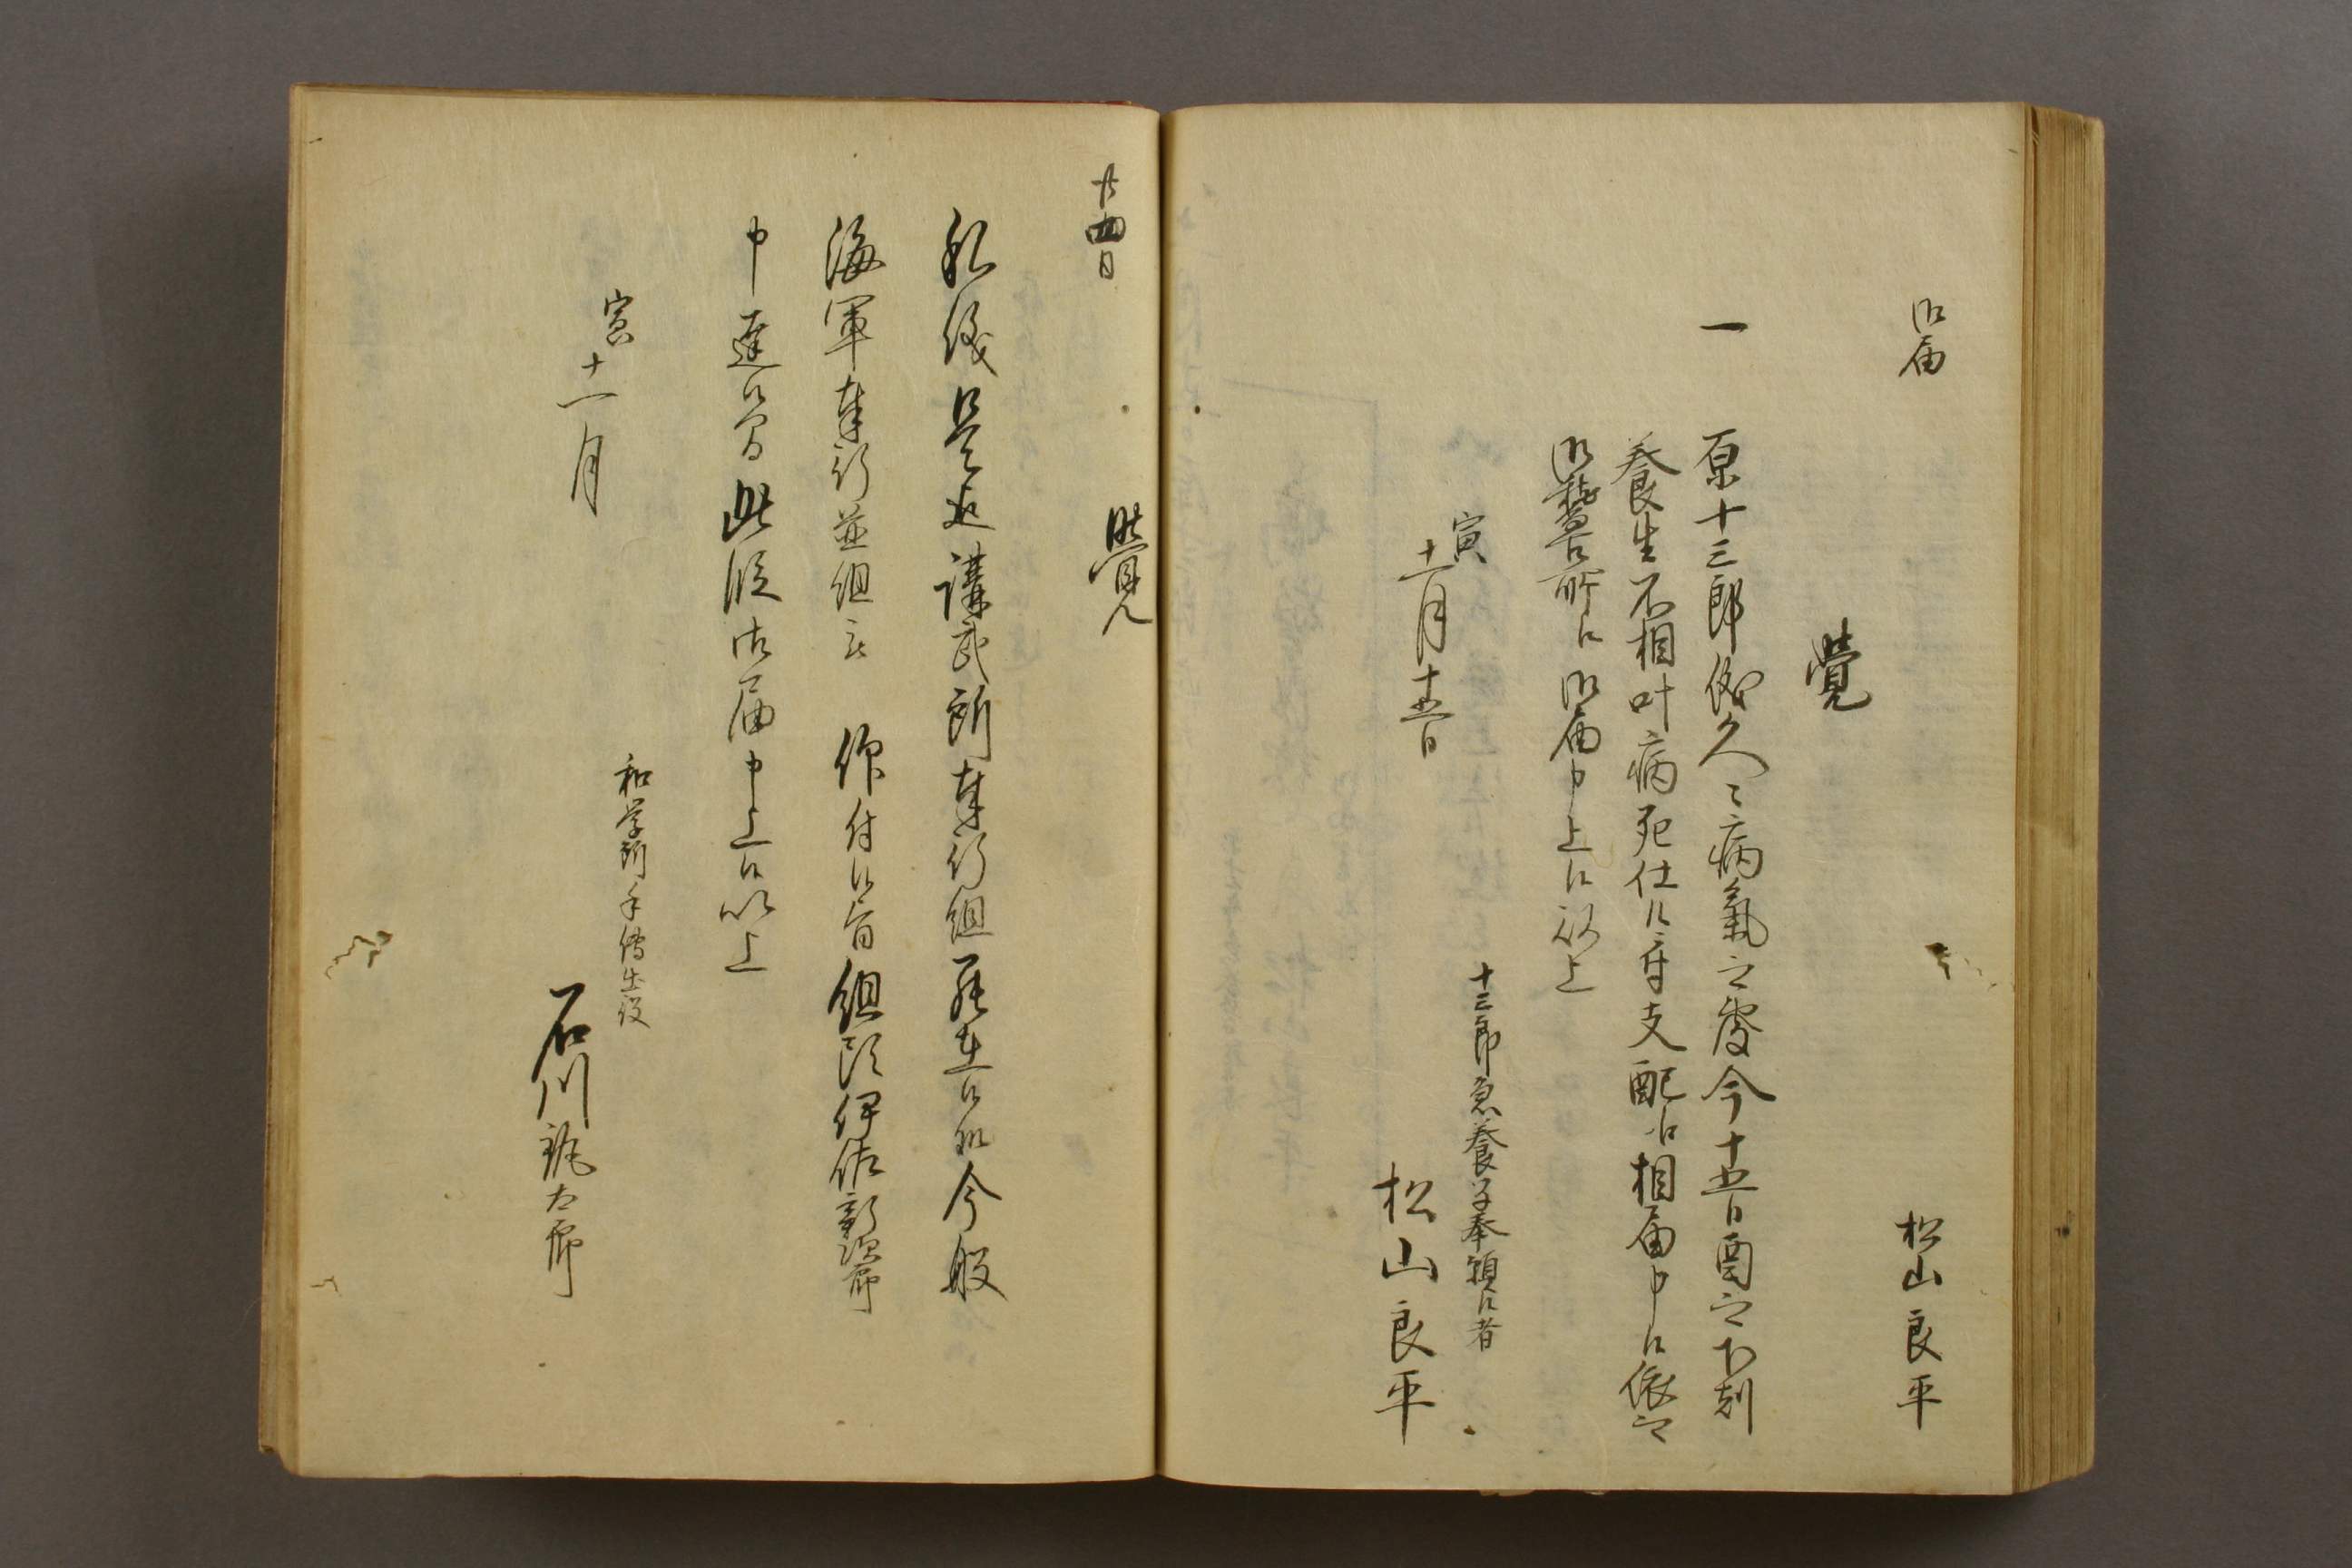 御届
松山良平
覚
一 原十三郎儀久々病氣之處今十五日酉之下刻
養生不相叶病死仕候ニ付支配江相届申候依之
御稽古所江御届申上候以上
寅
十一月十五日
十三郎急養子奉願候者
松山良平
廿四日
覺
私儀是迄講武所奉行組罷在候処今般
海軍奉行並組江 被 仰付候旨組頭伊佐新次郎
申達候間此段御届申上候以上
寅
十一月
和学所手傳出役
石川 太郎